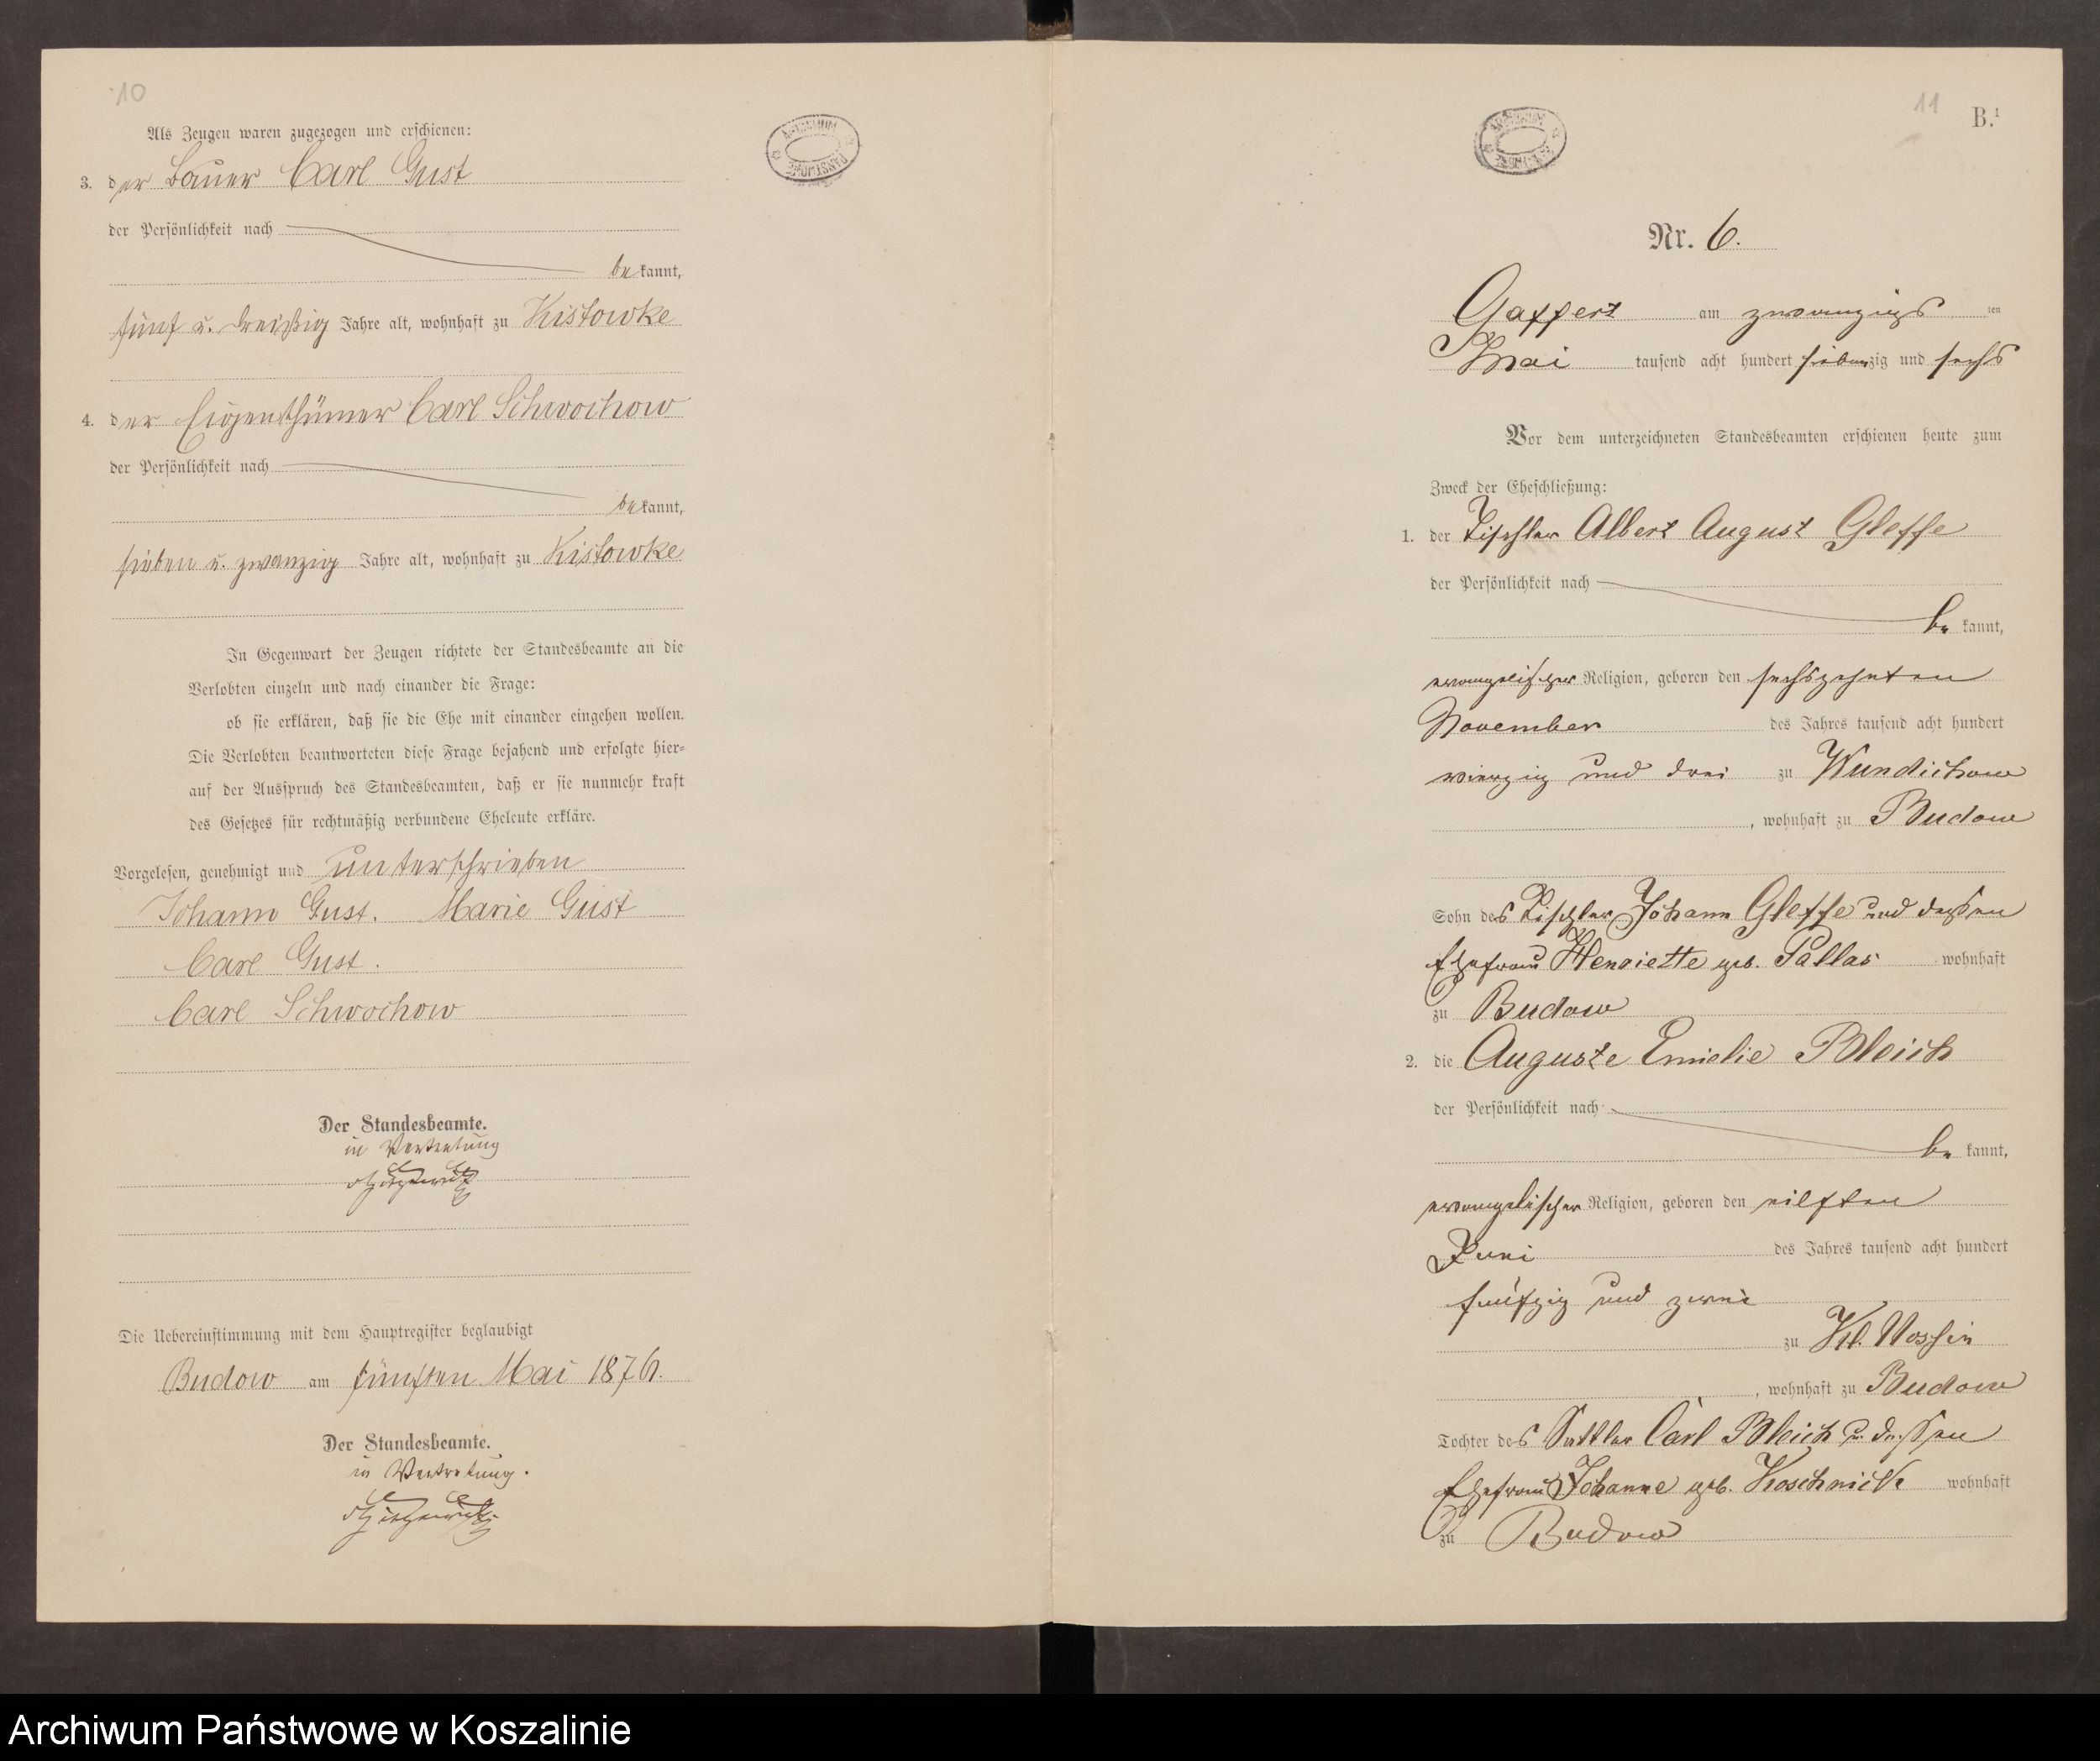 10
Als Zeugen waren zugezogen und erschienen:
3. der Bauer Carl Gust
der Persönlichkeit nach
bekannt,
fünf u. dreißig Jahre alt, wohnhaft zu Kistowke
4. der Eigenthümer Carl Schwochow
der Persönlichkeit nach
bekannt,
sieben u. zwanzig Jahre alt, wohnhaft zu Kistowke
In Gegenwart der Zeugen richtete der Standesbeamte an die
Verlobten einzeln und nach einander die Frage:
ob sie erklären, daß sie die Ehe mit einander eingehen wollen.
Die Verlobten beantworteten diese Frage bejahend und erfolgte hier-
auf der Ausspruch des Standesbeamten, daß er sie nunmehr kraft
des Gesetzes für rechtmäßig verbundene Eheleute erkläre.
Vorgelesen, genehmigt und unterschrieben
Johann Gust. Marie Gust
Carl Gust.
Carl Schwochow
Der Standesbeamte.
in Vertretung
Die Uebereinstimmung mit dem Hauptregister beglaubigt
Budow am fünften Mai 1876.
Der Standesbeamte.
in Vertretung.
ARCHIWUM PAŃSTWOWE
ARCHIWUM PAŃSTWOWE
11
B.¹
Nr. 6.
Gaffert am zwanzigs ten
Mai tausend acht hundert siebenzig und sechs
Vor dem unterzeichneten Standesbeamten erschienen heute zum
Zweck der Eheschließung:
1. der Tischler Albert August Gleffe
der Persönlichkeit nach
bekannt,
evangelischer Religion, geboren den sechszehnten
November des Jahres tausend acht hundert
vierzig und drei zu Wundichow
, wohnhaft zu Budow
Sohn des Tischler Johann Gleffe und dessen
Ehefrau Henriette geb. Pallas wohnhaft
zu Budow
2. die Auguste Emielie Bleich
der Persönlichkeit nach
bekannt,
evangelischer Religion, geboren den eilften
Juni des Jahres tausend acht hundert
fünfzig und zwei
zu Kl. Nossin
, wohnhaft zu Budow
Tochter des Sattler Carl Bleich u. dessen
Ehefrau Johanne geb. Koschnick wohnhaft
zu Budow
Archiwum Państwowe w Koszalinie